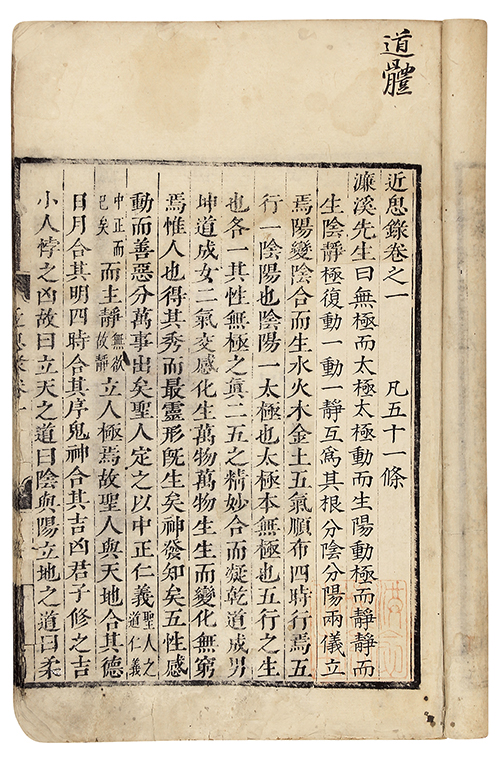 道體
近思錄卷之一 凡五十一條
濂溪先生曰無極而太極太極動而生陽動極而靜靜而
生陰靜極復動一動一靜互爲其根分陰分陽兩儀立
焉陽變陰合而生水火木金土五氣順布四時行焉五
行一陰陽也陰陽一太極也太極本無極也五行之生
也各一其性無極之眞二五之精妙合而凝乾道成男
坤道成女二氣交感化生萬物萬物生生而變化無窮
焉惟人也得其秀而最靈形旣生矣神發知矣五性感
動而善惡分萬事出矣聖人定之以中正仁義聖人之道仁義
中正而已矣而主靜無欲故靜立人極焉故聖人與天地合其德
日月合其明四時合其序鬼神合其吉凶君子修之吉
小人悖之凶故曰立天之道曰陰與陽立地之道曰柔